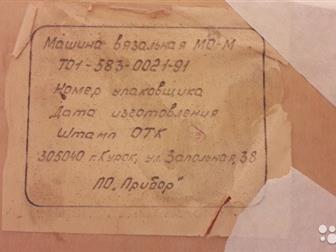 Машина вязальная МО-М
ТО1-583-0021-91
Номер упаковщика
Дата изготовления
Штамп ОТК
305040 г. Курск, ул. Запольная, 38
ПО „Прибор"